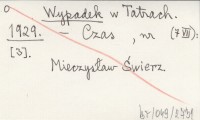 Wypadek w Tatrach.
1929. – Czas, nr (7 VII):
[3].
Mieczysław Świerz
bz/049/2791